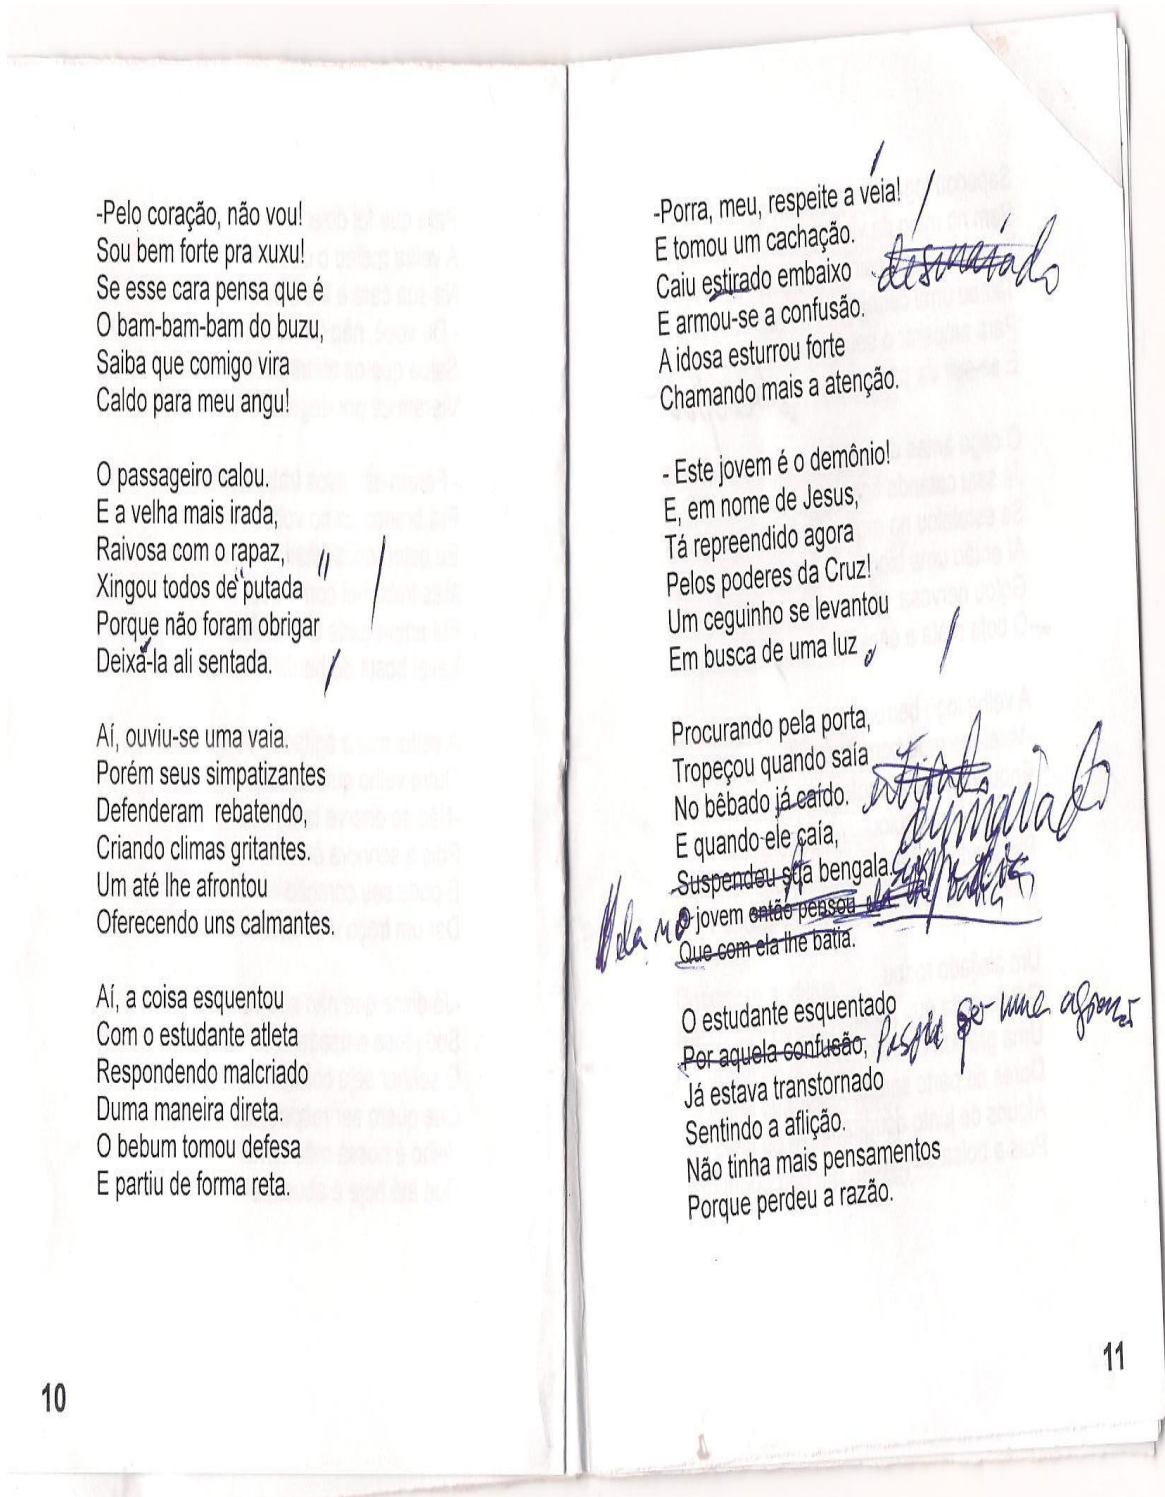 -Pelo coração, não vou!
Sou bem forte pra xuxu!
Se esse cara pensa que é
O bam-bam-bam do buzu,
Saiba que comigo vira
Caldo para meu angu!
O passageiro calou.
E a velha mais irada,
Raivosa com o rapaz,
Xingou todos de "putada"
Porque não foram obrigar
Deixá-la ali sentada.
Aí, ouviu-se uma vaia.
Porém seus simpatizantes
Defenderam rebatendo,
Criando climas gritantes.
Um até lhe afrontou
Oferecendo uns calmantes.
Aí, a coisa esquentou
Com o estudante atleta
Respondendo malcriado
Duma maneira direta.
O bebum tomou defesa
E partiu de forma reta.
10
-Porra, meu, respeite a véia!
E tomou um cachação.
Caiu estirado embaixo desmaiado
E armou-se a confusão.
A idosa esturrou forte
Chamando mais a atenção.
- Este jovem é o demônio!
E, em nome de Jesus,
Tá repreendido agora
Pelos poderes da Cruz!
Um ceguinho se levantou
Em busca de uma luz.
Procurando pela porta,
Tropeçou quando saía
No bêbado já caído.
E quando ele caía,
Suspendeu sua bengala.
O jovem então pensou
Que com ela lhe batia.
O estudante esquentado
Por aquela confusão, por uma
Já estava transtornado
Sentindo a aflição.
Não tinha mais pensamentos
Porque perdeu a razão.
11